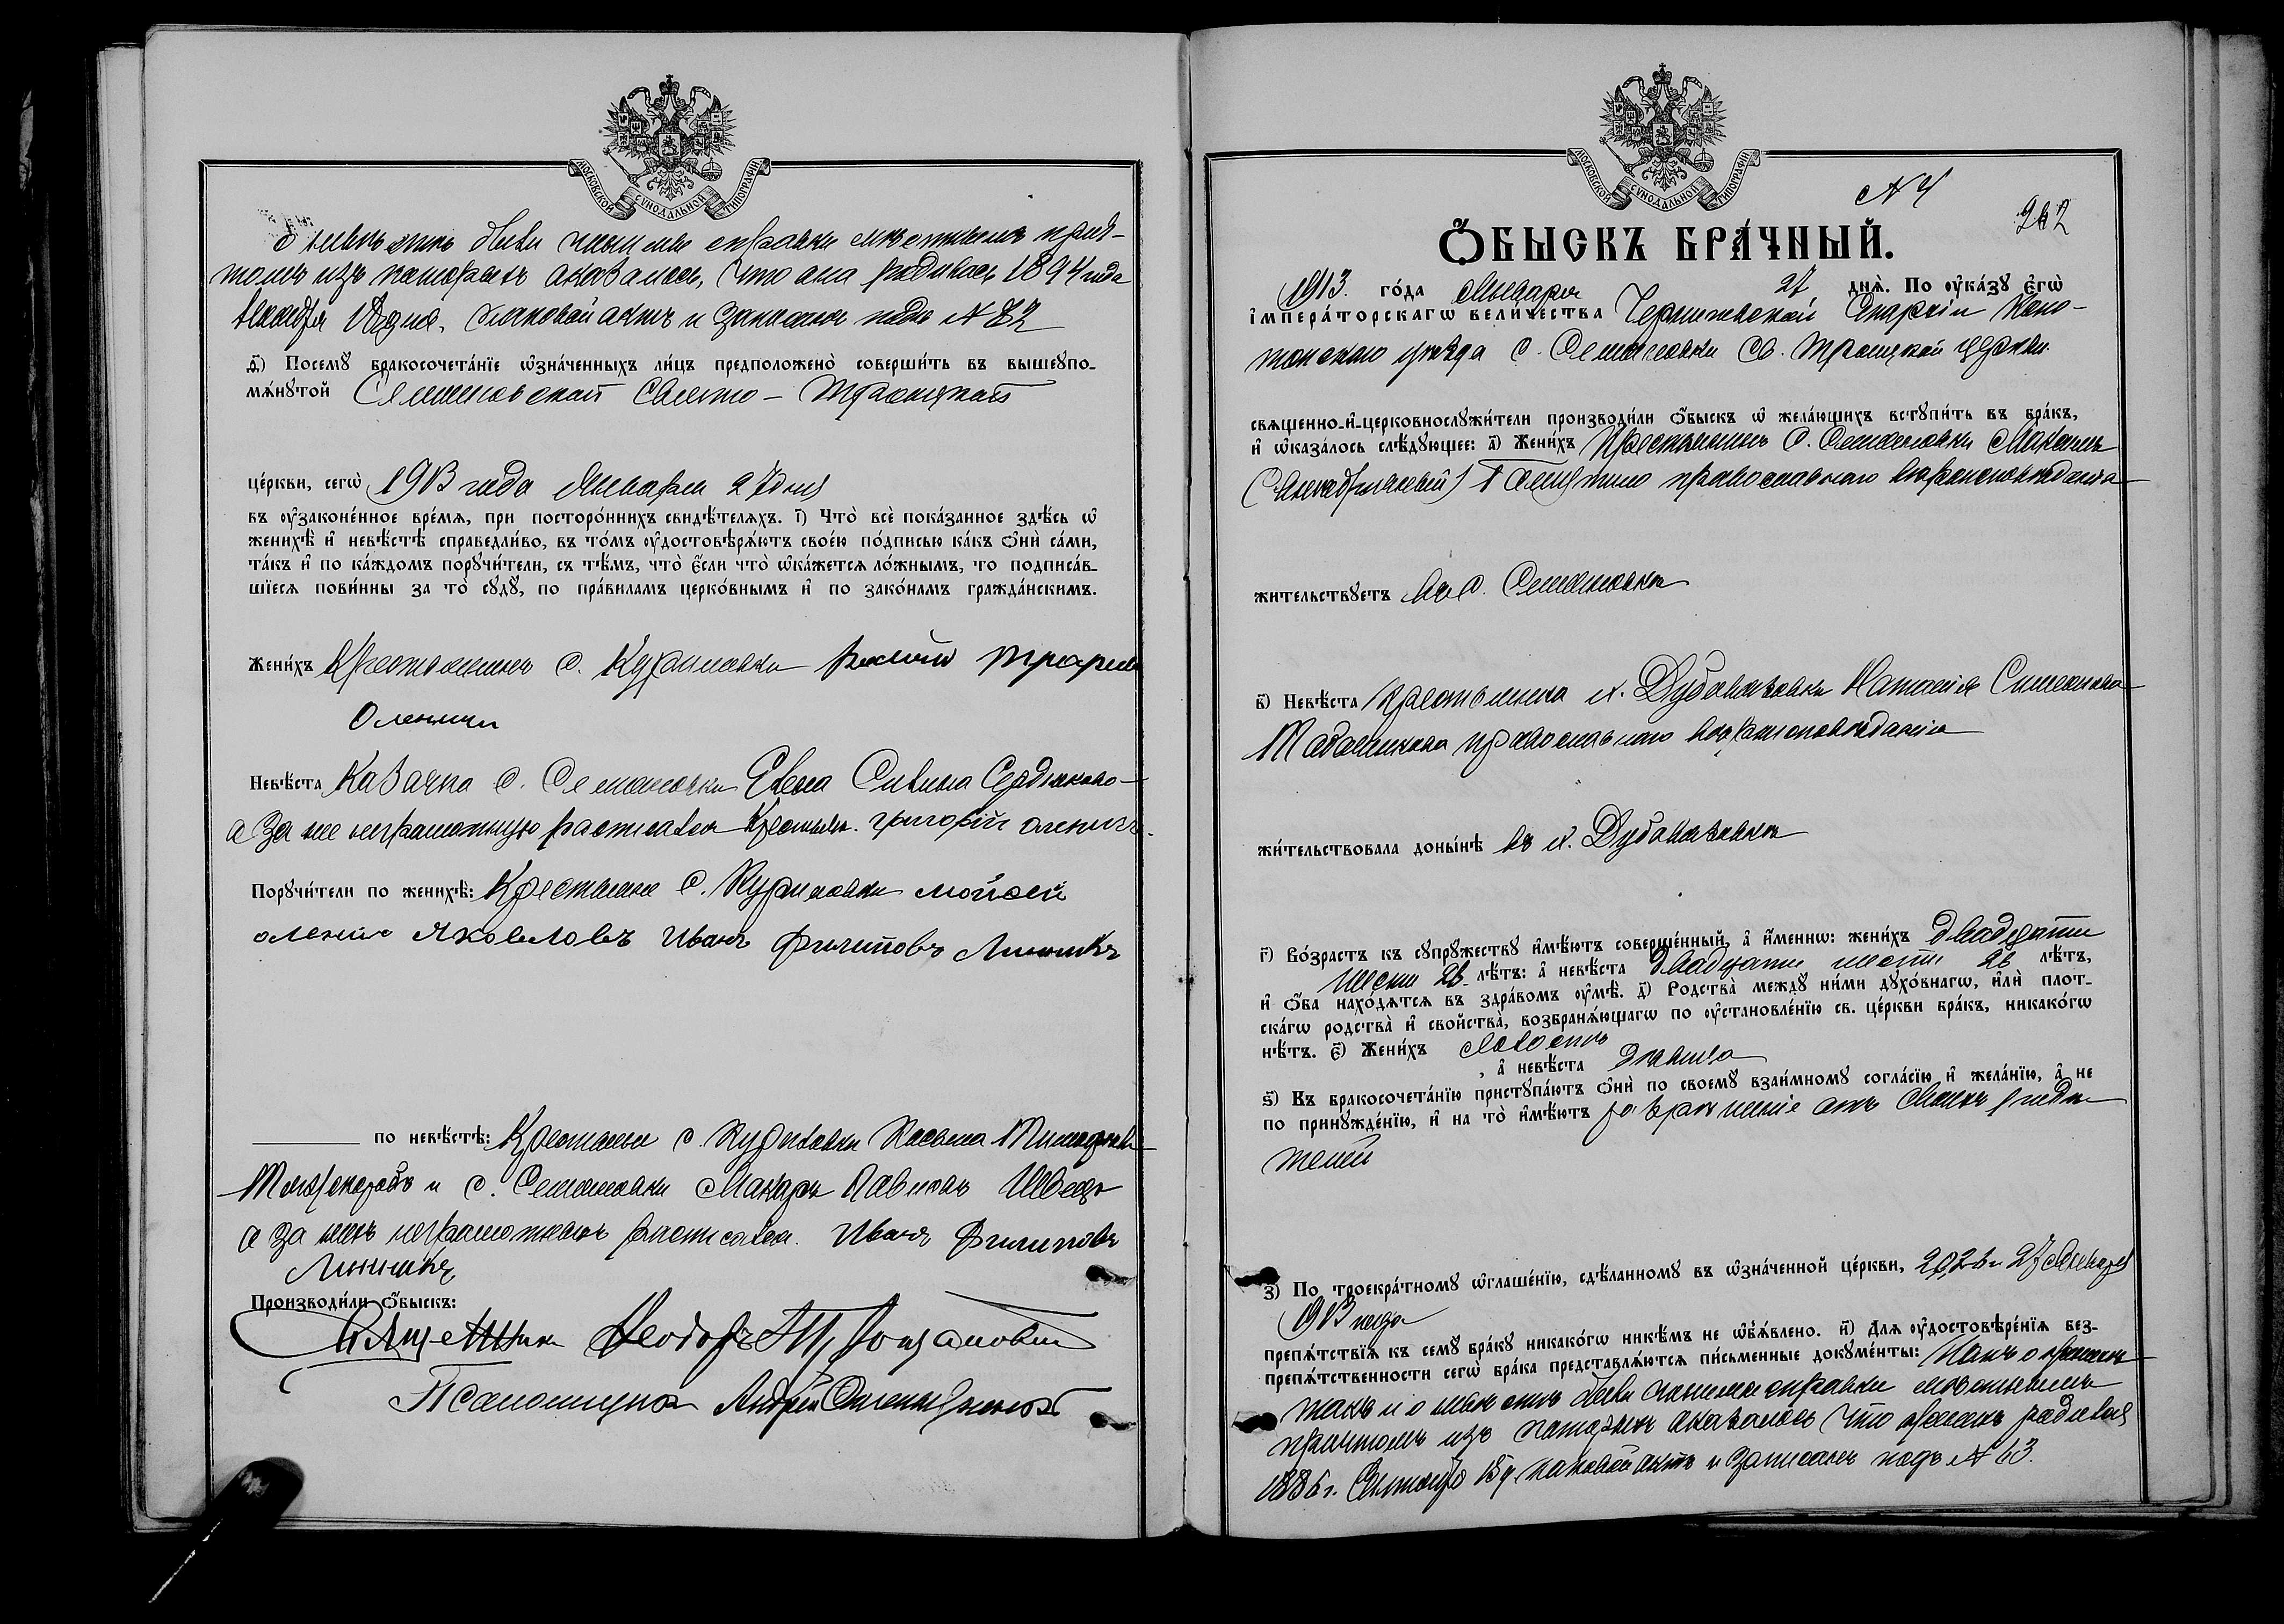 МОСКОВСКОЙ СѴНОДАЛЬНОЙ ТИПОГРАФІИ
о невѣстѣ были чинимы справки мѣстнымъ прич-
томъ изъ которыхъ оказалось, что она родилась 1894 года
декабря дня, каковой актъ и записанъ подъ № 82
д҃) Посемꙋ̀ бракосочета́нїе ѡ҆зна́ченныхъ ли́цъ предположено̀ соверши́ть въ вышеꙋпо-
мѧ́нꙋтой Семеновской Свято-Троицкой
це́ркви, сегѡ̀ 1913 года Января 27 дня
въ ѹ҆законе́нное вре́мѧ, при посторо́ннихъ свидѣ́телѧхъ. і҃) Что̀ всѐ пока́занное здѣ́сь ѡ҆
женихѣ̀ и҆ невѣ́стѣ справедли́во, въ то́мъ ѹ҆достовѣрѧ́ютъ свое́ю по́дписью ка́къ ѻ҆нѝ са́ми,
та́къ и҆ по ка́ждомъ порꙋчи́тели, съ тѣ́мъ, что̀ є҆́сли что̀ ѡ҆ка́жетсѧ ло́жнымъ, то подписа́в-
шїесѧ пови́нны за то̀ сꙋдꙋ̀, по пра́виламъ церко́внымъ и҆ по зако́намъ гражда́нскимъ.
Жени́хъ Крестьянинъ с. Куриловки
Оленичъ
Невѣ́ста Казачка с. Семеновки Евгенія Савина Сердюкова
а за нее неграмотную расписался Крестьян. Григорій Оленичъ.
Порꙋчи́тели по женихѣ̀: Крестьяне с. Куриловки Мойсей
Оленич Яковлевъ Иванъ Филиповъ Линникъ
по невѣ́стѣ: Крестьяне с. Куриловки
и с. Семеновки Макаръ Павловъ Швецъ
а за нихъ неграмотныхъ расписался. Иванъ Филиповъ
Линникъ
Производи́ли ѻ҆́быскъ:
Священникъ Ѳеодоръ
Псаломщикъ Андрей
МОСКОВСКОЙ СѴНОДАЛЬНОЙ ТИПОГРАФІИ
№ 4
262
Ѻ҆́БЫСКЪ БРА́ЧНЫЙ.
1913. го́да Января 27 днѧ̀. По ѹ҆ка́зꙋ є҆гѡ̀
і҆мпера́торскагѡ вели́чества Черниговской Епархіи Коно-
топскаго уѣзда с. Семеновки Св. Троицкой церкви
свѧщенно-и҆-церковнослꙋжи́тели производи́ли ѻ҆́быскъ ѡ҆ жела́ющихъ встꙋпи́ть въ бра́къ,
и҆ ѡ҆каза́лось слѣ́дꙋющее: а҃) Жени́хъ Крестьянинъ с. Семеновки
православнаго вѣроисповѣданія
жительствꙋетъ въ с. Семеновкѣ
в҃) Невѣ́ста Крестьянка м. Дубовязовки Наталія Симеонова
православнаго вѣроисповѣданія
жи́тельствовала доны́нѣ въ м. Дубовязовкѣ
г҃) Во́зрастъ къ сꙋпрꙋ́жествꙋ и҆мѣ́ютъ соверше́нный, а҆ и҆́меннѡ: жени́хъ двадцати
шести 26 лѣ́тъ: а҆ невѣ́ста двадцати шести 26 лѣ́тъ,
и҆ ѻ҆́ба нахо́дѧтсѧ въ здра́вомъ ѹ҆мѣ̀. д҃) Родства̀ междꙋ̀ ни́ми дꙋхо́внагѡ, и҆лѝ плот-
ска́гѡ родства̀ и҆ свойства̀, возбранѧ́ющагѡ по ѹ҆становле́нїю св. це́ркви бра́къ, никако́гѡ
нѣ́тъ. є҃) Жени́хъ холостъ
, а҆ невѣ́ста дѣвица
ѕ҃) Къ бракосочета́нїю пристꙋпа́ютъ ѻ҆нѝ по своемꙋ̀ взаи́мномꙋ согла́сїю и҆ жела́нїю, а҆ не
по принꙋжде́нїю, и҆ на то̀ и҆мѣ́ютъ разрѣшеніе отъ своихъ роди-
телей
з҃) По троекра́тномꙋ ѡ҆глаше́нїю, сдѣ́ланномꙋ въ ѡ҆зна́ченной це́ркви, 20, 26 и 27 Января
1913 года
препѧ́тствїѧ къ семꙋ̀ бра́кꙋ никако́гѡ никѣ́мъ не ѡ҆б̾ѧ́влено. и҃) Длѧ ѹ҆достовѣре́нїѧ без-
препѧ́тственности сегѡ̀ бра́ка представлѧ́ютсѧ пи́сьменные докꙋме́нты: Какъ о женихѣ
такъ и о невѣстѣ были чинимы справки мѣстнымъ
причтомъ изъ которыхъ оказалось что женихъ родился
1886 г. Сентября каковой актъ и записанъ подъ № 63.